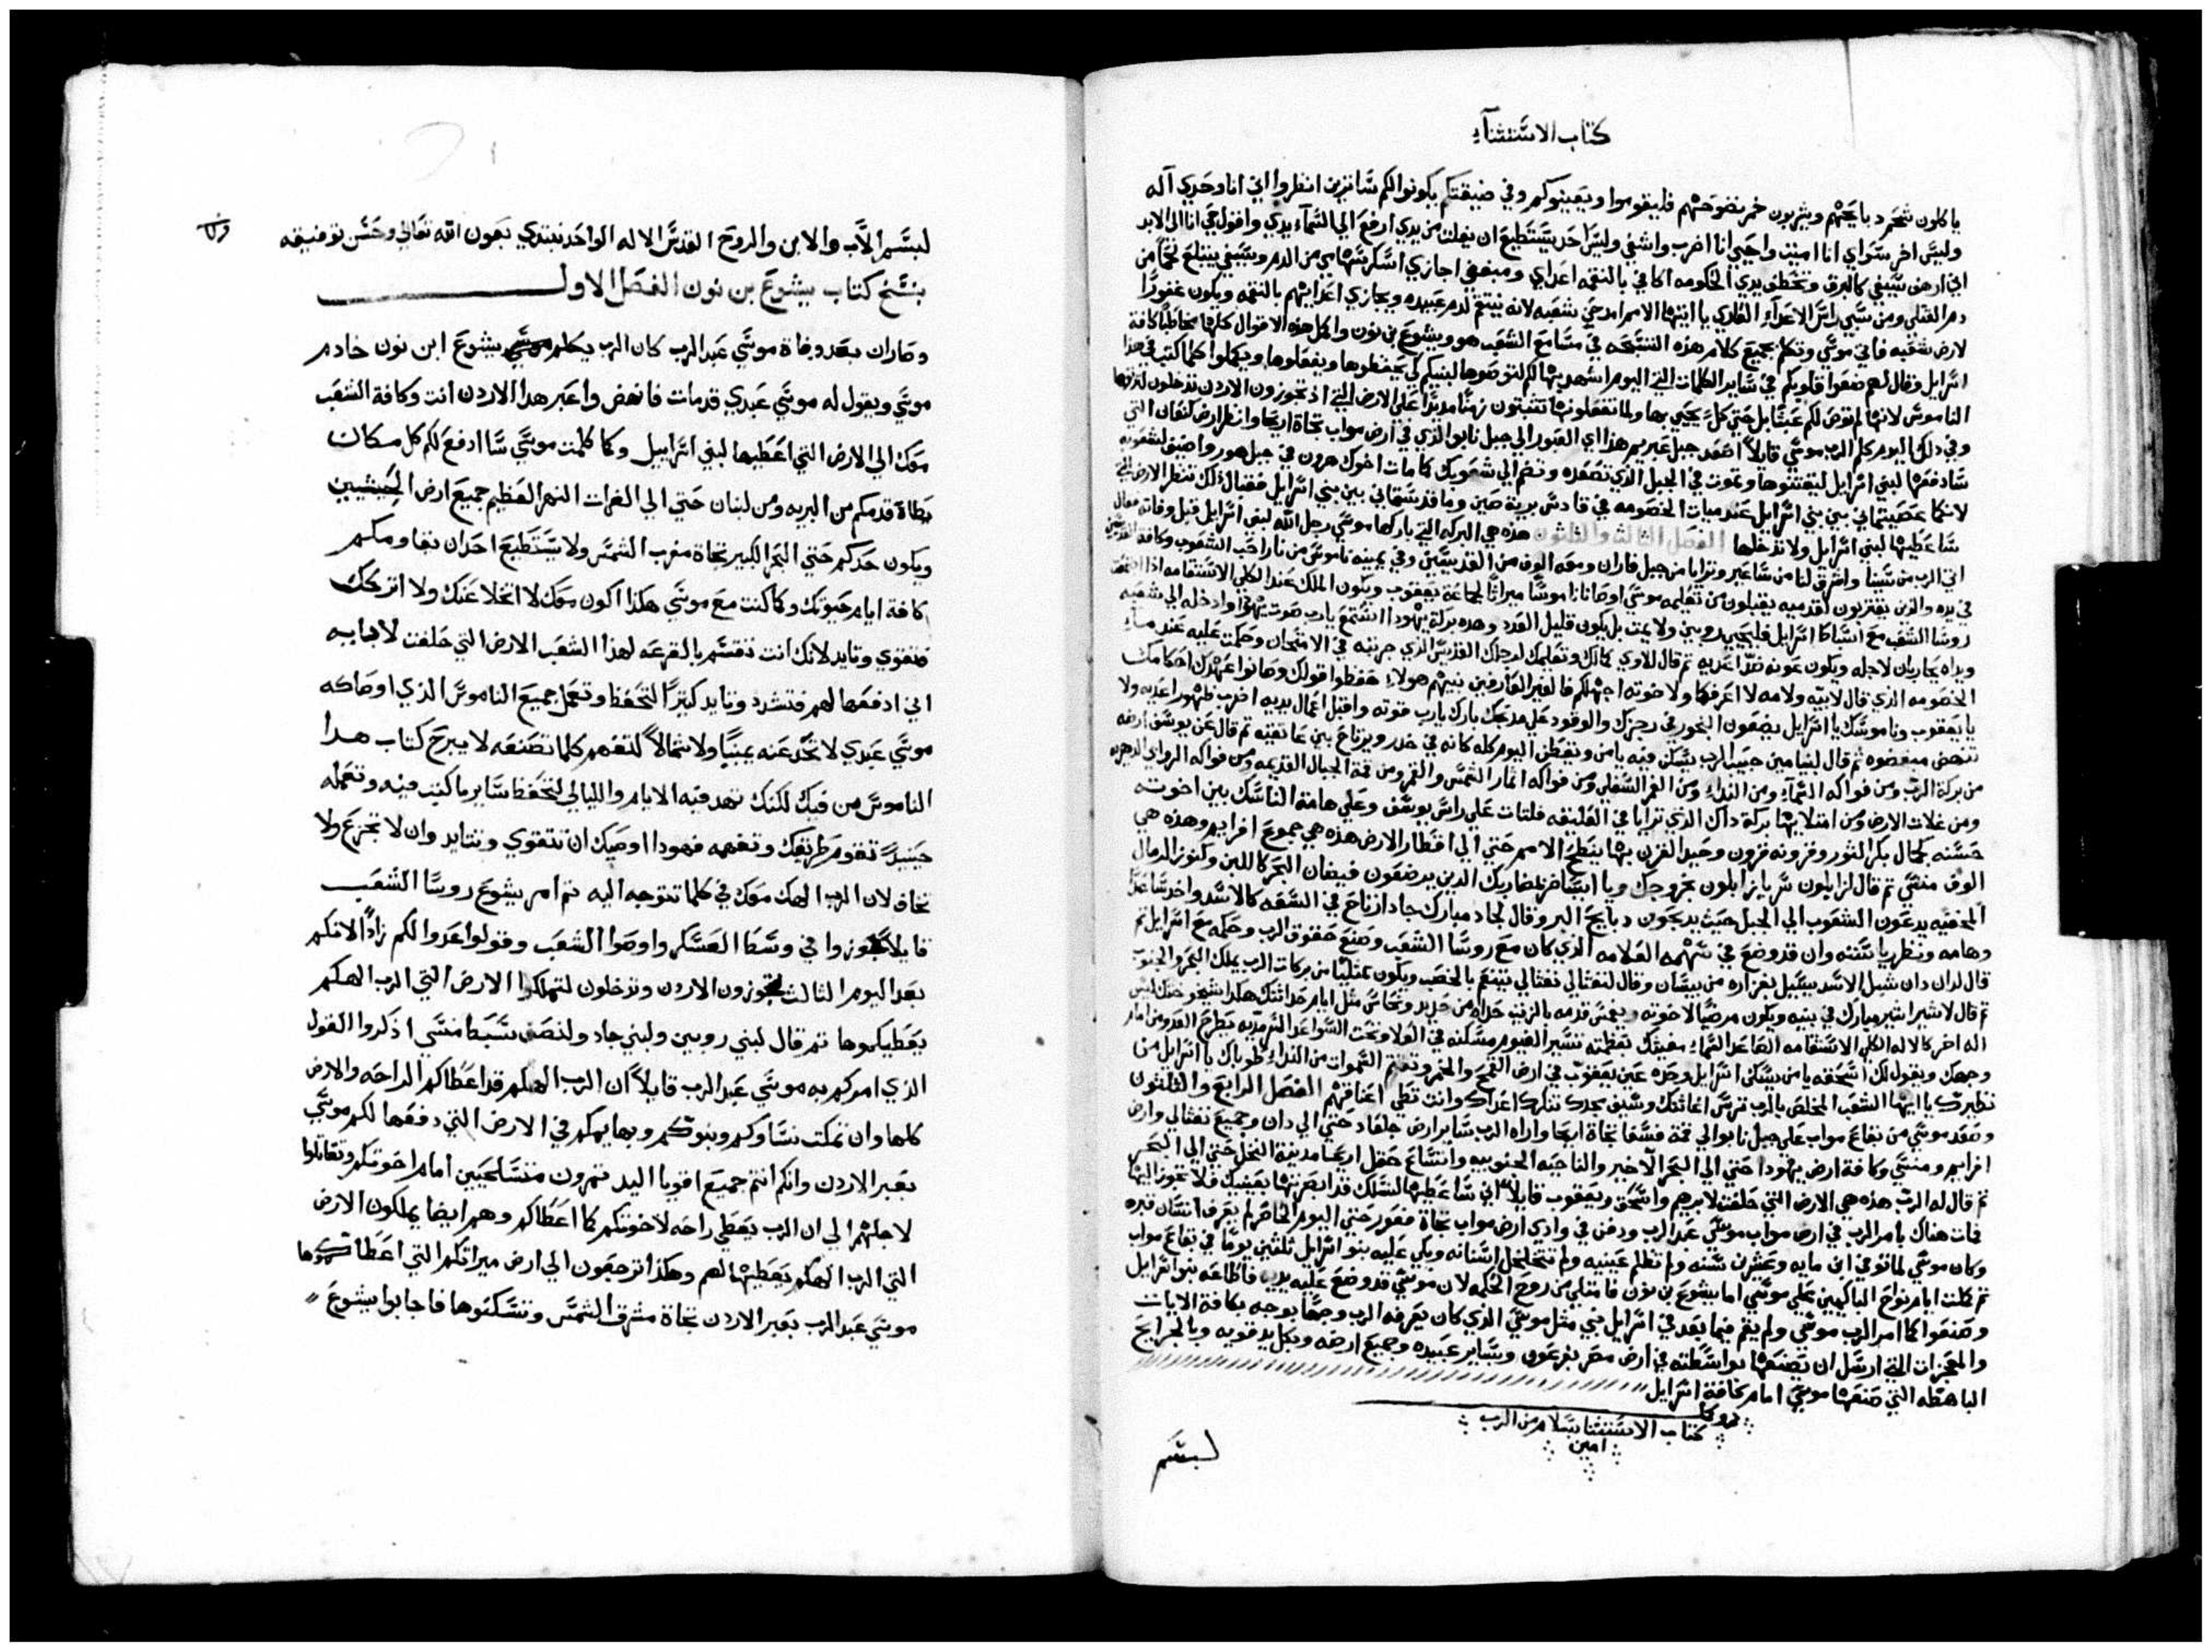 كتاب الاستثناء
ياكلون شحم دبايحهم ويشربون خمر نضوحهم فليقوموا ويعينوكم وفي ضيقتكم يكونوا لكم ساترين انظروا اني انا وحدي اله
وليس اخر سواي انا اميت واحيي انا اضرب واشفي وليس احد يستطيع ان يفلت من يدي ارفع الي السماء يدي واقول حي انا الى الابد
اني ارهف سيفي كالبرق وتخطف يدي الحكومه اكافي بالنقمه اعداي ومبغضي اجازي اسكر سهامي من الدم وسيفي يبتلع لحما من
دم القتلي ومن سبي راس الاعداء
لارض شعبه فاتي موسي وتكلم بجميع كلام هذه التسبحه في مسامع الشعب هو ويشوع بن نون واكمل هذه الاقوال كلها مخاطبا كافة
اسرايل وقال لهم ضعوا قلوبكم في ساير الكلمات التي اليوم اشهد بها لكم لتوصوها لبنيكم كي يحفظوها ويفعلوها ويكملوا كلما كتب في هذا
الناموس لانها لم توص لكم عبثا بل حتي كل يحيي بها ولما تفعلونها تثبتون زمنا مديدا على الارض التي اذ تجوزون الاردن تدخلون لترثوها
وفي ذلك اليوم كلم الرب موسي قايلا اصعد جبل عبريم هذا اي العبور الي جبل نابو الذي في ارض مواب تجاة اريحا وانظر ارض كنعان التي
سادفعها لبني اسرايل ليقتنوها وتموت في الجبل الذي تصعده وتضم الي شعوبك كما مات اخوك هرون في جبل هور واضيف لشعوبه
لانكما عصيتماني بين بني اسرايل عند مياه الخصومه في قادش برية صين وما قدستماني بين بني اسرايل فقبال ذلك تنظر الارض التي
ساعطيها لبني اسرايل ولا تدخلها الفصل الثالث والثلثون هذه هي البركه التي باركها موسي رجل الله لبني اسرايل قبل وفاته فقال
اتي الرب من سينا واشرق لنا من ساعير وترايا من جبل فاران ومعه الوف من القديسين وفي يمينه ناموس من نار احب الشعوب وكافة القديسين
في يده والذين يقتربون لقدميه يقبلون من تعليمه موسي اوصانا ناموسا ميراثا لجماعة يعقوب ويكون الملك عند الكلي الاستقامه اذا اجتمع
روسا الشعب مع اسباط اسرايل فليحيى روبين ولا يمت بل يكون قليل العدد وهذه بركة يهودا استمع يارب صوت يهودا وادخله الي شعبه
ويداه يحاربان لاجله ويكون عونه ضد اعدايه ثم قال للاوي كمالك وتعليمك لرجلك القديس الذي جربته في الامتحان وحكمت عليه عند ماء
الخصومه الذي قال لابيه ولامه لا اعرفكما ولاخوته اجهلكم
يايعقوب وناموسك يااسرايل يضعون البخور في رجزك والوقود علي مدبحك بارك يارب قوته واقبل اعمال يديه اضرب ظهور اعدايه ولا
تنهض مبغضوه ثم قال لبنيامين حبيب الرب يسكن فيه يامن ويقطن اليوم كله كانه في خدر ويرتاح بين عاتقيه ثم قال عن يوسف ارضه
من بركة الرب ومن فواكه السماء ومن النداء ومن الغمر السفلي ومن فواكه اثمار الشمس والقمر ومن قمة الجبال القديمه ومن فواكه الروابي الدهريه
ومن غلات الارض ومن امتلايها بركة داك الذي ترايا في العليقه فلتات علي راس يوسف وعلي هامة الناسك بين اخوته
حسنه كجمال بكر الثور وقرونه قرون وحيد القرن بها ينطح الامم حتي الي اقطار الارض هذه هي جموع افرايم وهذه هي
الوف منسي ثم قال لزابلون سر يازابلون بخروجك ويا ايساخر
المخفيه يدعون الشعوب الي الجبل حيث يدبحون دبايح البر وقال لجاد مبارك جاد ارتاح في السعه كالاسد
قال لدان دان شبل الاسد يسيل بغزاره من بيسان وقال لنفتالي نفتالي يتنعم بالخصب ويكون ممتليا من بركات الرب يملك البحر والجنوب
ثم قال لاشير اشير مبارك في بنيه ويكون مرضيا لاخوته ويغمس قدمه بالزيت حداه من حديد ونحاس مثل ايام حداثتك هكذا شيخوختك ليس
اله اخر كالاله الكلي الاستقامه الصاعد السماء معينك
وجهك ويقول لك
نظيرك يا ايها الشعب المخلص بالرب ترس اغاثتك وسيف مجدك تنكرك اعداك وانت تطي اعناقهم الفصل الرابع والثلثون
وصعد موسي من بقاع مواب علي جبل نابو الي قمة فسغا تجاة اريحا واراه الرب ساير ارض جلعاد حتي الي دان وجميع نفتالي وارض
افرايم ومنسي وكافة ارض يهودا حتي الي البحر الاخير والناحيه الجنوبيه واتساع حقل اريحا مدينة النخل حتي الي
ثم قال له الرب هذه هي الارض التي حلفت لابرهيم واسحق ويعقوب قايلا اني ساعطيها لنسلك قد ابصرتها بعينيك فلا تجوز اليها
فمات هناك بامر الرب في ارض مواب موسي عبد الرب ودفن في وادي ارض مواب تجاة فغور حتي اليوم الحاضر لم يعرف انسان قبره
وكان موسي لما توفي ابن مايه وعشرين سنه ولم تظلم عينيه ولم تتخلخل اسنانه وبكي عليه بنو اسرايل ثلثين يوما في بقاع مواب
ثم كملت ايام نوح الباكيين علي موسي اما يشوع بن نون فامتلي من روح الحكمه لان موسي قد وضع عليه يديه فاطاعه بنو اسرايل
وصنعوا كما امر الرب موسي ولم يقم فيما بعد في اسرايل نبي مثل موسي الذي كان يعرفه الرب وجها بوجه بكافة الايات
والمعجزات التي ارسل ان يصنعها بواسطته في ارض مصر بفرعون وساير عبيده وجميع ارضه وبكل يد قويه وبالجرايح
الباهظه التي صنعها موسي امام كافة اسرايل
كتاب الاستثنا بسلام من الرب
امين
لبسم
لبسم الاب والابن والروح القدس الاله الواحد نبتدي بعون الله تعالي وحسن توفيقه
بنسخ كتاب يشوع بن نون الفصل الاول
وصار ان بعد وفاة موسي عبد الرب كان الرب يكلم يشوع ابن نون خادم
موسي ويقول له موسي عبدي قد مات فانهض واعبر هدا الاردن انت وكافة الشعب
معك الي الارض التي اعطيها لبني اسراييل وكما كلمت موسي سا ادفع لكم كل مكان
بطاة قدمكم من البريه ومن لبنان حتي الي الفرات النهر العظيم جميع ارض الحيثيين
ويكون حدكم حتي البحر الكبير تجاة مغرب الشمس ولا يستطيع احد ان يقاومكم
كافة ايام حيوتك وكما كنت مع موسي هكذا اكون معك لا اتخلا عنك ولا اتركك
فتقوي وتايد لانك انت تقتسم بالقرعه لهذا الشعب الارض التي حلفت لابايه
اني ادفعها لهم فتشدد وتايد كثيرا لتحفظ وتعمل جميع الناموس الذي اوصاكه
موسي عبدي لا تحد عنه يمينا ولا شمالا لتفهم كلما تصنعه لا يبرح كتاب هدا
الناموس من فيك لكنك تهد فيه الايام والليالي لتحفظ ساير ما كتب فيه وتعمله
حينيدا تقوم طريقك وتفهمه فهودا اوصيك ان تتقوي وتتايد وان لا تجزع ولا
تخاف لان الرب الهك معك في كلما تتوجه اليه ثم امر يشوع روسا الشعب
قايلا جوزوا في وسط العسكر واوصوا الشعب وقولوا اعدوا لكم زادا لانكم
بعد اليوم الثالث تجوزون الاردن وتدخلون لتملكوا الارض التي الرب الهكم
يعطيكموها ثم قال لبني روبين ولبني جاد ولنصف سبط منسي اذكروا القول
الذي امركم به موسي عبد الرب قايلا ان الرب الهكم قد اعطاكم الراحه والارض
كلها وان تمكث نساوكم وبنوكم وبهايمكم في الارض التي دفعها لكم موسي
بعبر الاردن وانكم انتم جميع اقويا اليد تمرون متسلحين امام اخوتكم وتقاتلوا
لاجلهم الي ان الرب يعطي راحه لاخوتكم كما اعطاكم وهم ايضا يملكون الارض
التي الرب الهكم يعطيها لهم وهكذا ترجعون الي ارض ميراثكم التي اعطاكموها
موسي عبد الرب بعبر الاردن تجاة مشرق الشمس وتسكنوها فاجابوا يشوع